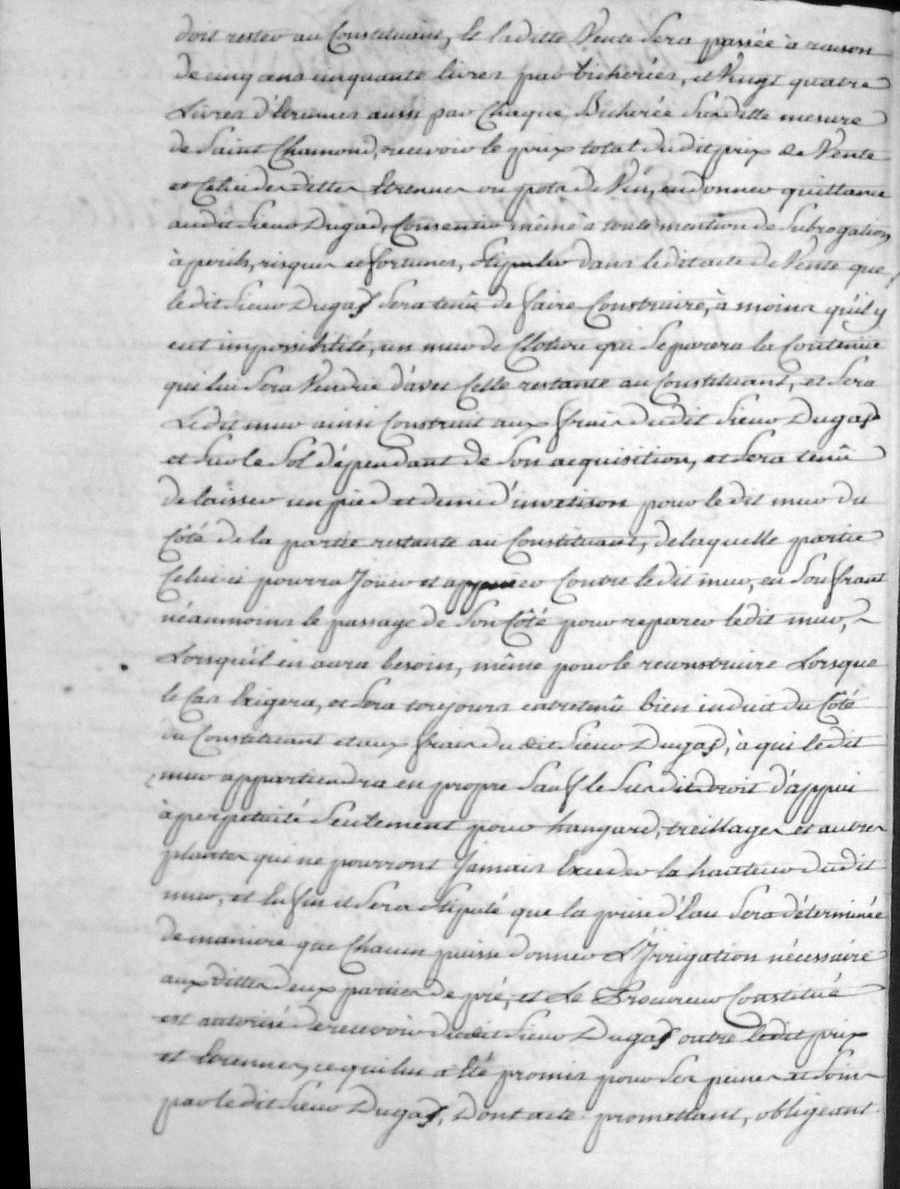 doit rester au Constituant, le laditte Vente Sera passée à raison
de cinq cens cinquante livres par bicherées, et Vingt quatre
Livres d'Etrennes aussi par Chaque Bicherée Susditte mesure
de Saint Chamond, recevoir le prix total dudit prix de Vente
et Celui desdittes Etrennes ou pots de Vin, en donner quittance
audit Sieur Dugas, Consentir même à toute mention de Subrogation,
à perils, risques et fortunes, Stipuler dans ledit acte de Vente que
ledit Sieur Dugas Sera tenû de faire Construire, à moins qu'il y
eut impossibilité, un mur de Cloture qui Separera la Contenue
qui lui Sera Vendue d'avec Celle restante au Constituant, et Sera
Ledit mur ainsi Construit aux frais dudit Sieur Dugas
et Sur le Sol dépendant de Son acquisition, et Sera tenû
de laisser un pied et demi d'invetison pour ledit mur du
Côté de la partie restante au Constituant, de laquelle partie
Celui ci pourra Joüir et appuier Contre ledit mur, en Souffrant
néanmoins le passage de Son Côté pour reparer ledit mur,
Lorsqu'il en aura besoin, même pour le reconstruire Lorsque
le Cas Exigera, et Sera toujours entretenû bien enduit du Côté
du Constituant et aux frais dudit Sieur Dugas, à qui ledit
mur appartiendra en propre Sauf le Susdit droit d'appui
à perpetuité Seulement pour hangard, treillages et autres
plantes qui ne pourront Jamais Exceder la hauteur dudit
mur, et Enfin il Sera Stipulé que la prise d'Eau Sera déterminée
de maniere que Chacun puisse donner L'Irrigation nécessaire
aux dittes deux parties de pré, et Le Procureur Constitué
est autorisé de recevoir dudit Sieur Dugas outre ledit prix
et Etrennes, ce qui lui a Eté promis pour Ses peines et Soins
par ledit Sieur Dugas, Dont acte promettant, obligeant